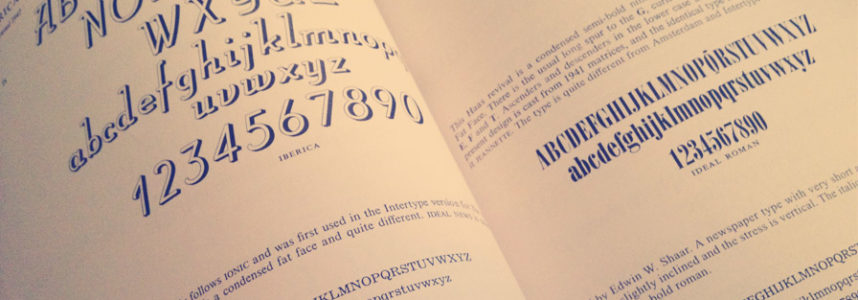 NO
W X
abcdefghijklmnop
uvwxyz
1234567890
IBERICA
follows IONIC and was first used in the Intertype version for
a condensed fat face and quite different. IDEAL NEWS
KLMNOPQRSTUVWXYZ
This Haas revival is a condensed semi-bold
Fat Face. There is the usual long spur to the G,
E, F and T. Ascenders and descenders in the lower case
present design is cast from 1941 matrices, and the identical type
JEANNETTE. The type is quite different from Amsterdam and Intertype
ABCDEFGHIJKLMNOPQRSTUVWXYZ
abcdefghijklmnopqrstuvwxyz
1234567890
IDEAL ROMAN
by Edwin W. Shaar. A newspaper type with very short
slightly inclined and the stress is vertical. The italic
bold roman.
KLMNOPQRSTUVWXYZ